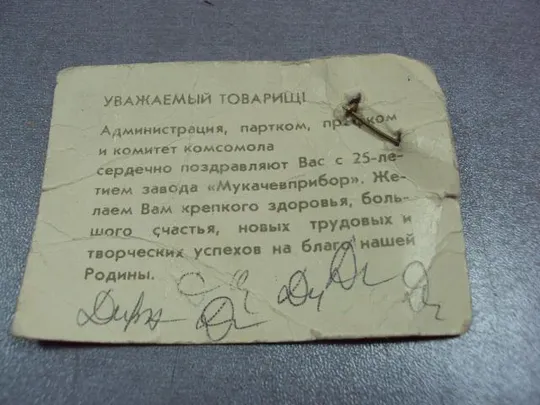 УВАЖАЕМЫЙ ТОВАРИЩ!
Администрация, партком, профком
и комитет комсомола
сердечно поздравляют Вас с 25-ле-
тием завода «Мукачевприбор». Же-
лаем Вам крепкого здоровья, боль-
шого счастья, новых трудовых и
творческих успехов на благо нашей
Родины.